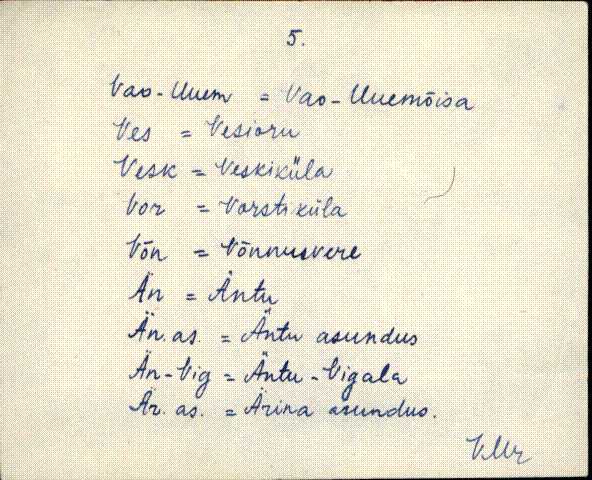 5.
Vao-Uuem = Vao-Uuemõisa
Ves = Vesioru
Vesk = Veskiküla
Vor = Vorstiküla
Võn = Võnnusvere
Än = Äntu
Än. as. = Äntu asundus
Än-Vig = Äntu-Vigala
Är. as. = Ärina asundus.